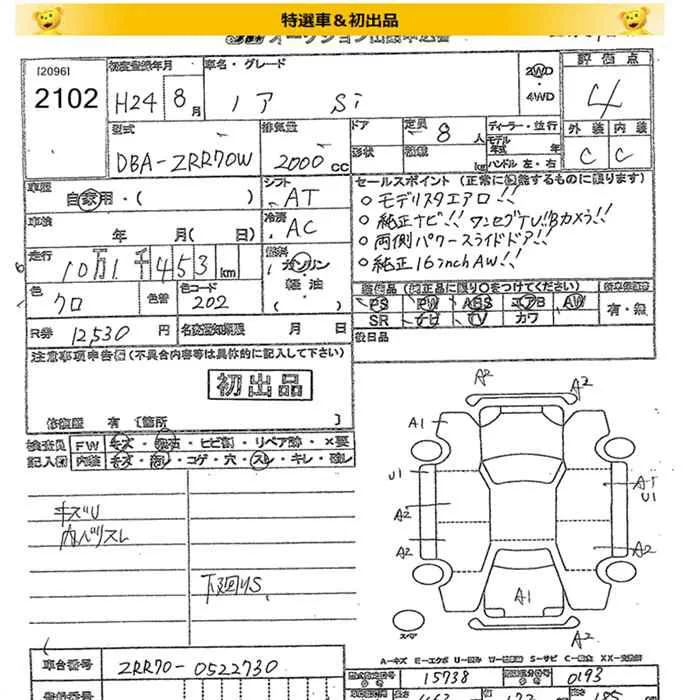 特選車＆初出品
[2096]
2102
初度登録年月
H24 8月
車名・グレード
ノア Si
2WD
・
4WD
評価点
4
外装 内装
C C
型式
DBA-ZRR70W
排気量
2000cc
ドア
形状
定員 8人
kg
ディーラー・並行
モデル年式 年
ハンドル 左・右
車歴
自家用・( )
シフト
AT
セールスポイント (正常に機能するものに限ります)
○モデリスタエアロ!!
○純正ナビ!! ワンセグTV!! Bカメラ!!
○両側パワースライドドア!!
○純正16inchAW!!
車検
年 月( 日)
冷房
AC
走行
10万1千453km
燃料
ガソリン
軽油
( )
色
クロ
色替
色コード
202
装備品 (純正品に限り○をつけてください)
PS PW ABS エアB AW
SR ナビ TV カワ
有・無
R券 12,530円
名変期限 月 日
後日品
注意事項申告欄 (不具合内容等は具体的に記入して下さい)
初出品
修復歴 有 [箇所 ]
検査員 FW キズ・飛石・ヒビ割・リペア跡・×要
記入欄 内装 キズ・汚レ・コゲ・穴・スレ・キレ・破レ
キズU
内ベリスレ
下廻りS
A2 A2
A1
U1
A2
A2
A1
U1
A2
A1
A2
スペア
A-キズ E-エクボ U-凹み W-補修跡 S-サビ C-腐食 XX-交換済
車台番号 ZRR70-0522730
15738
0193